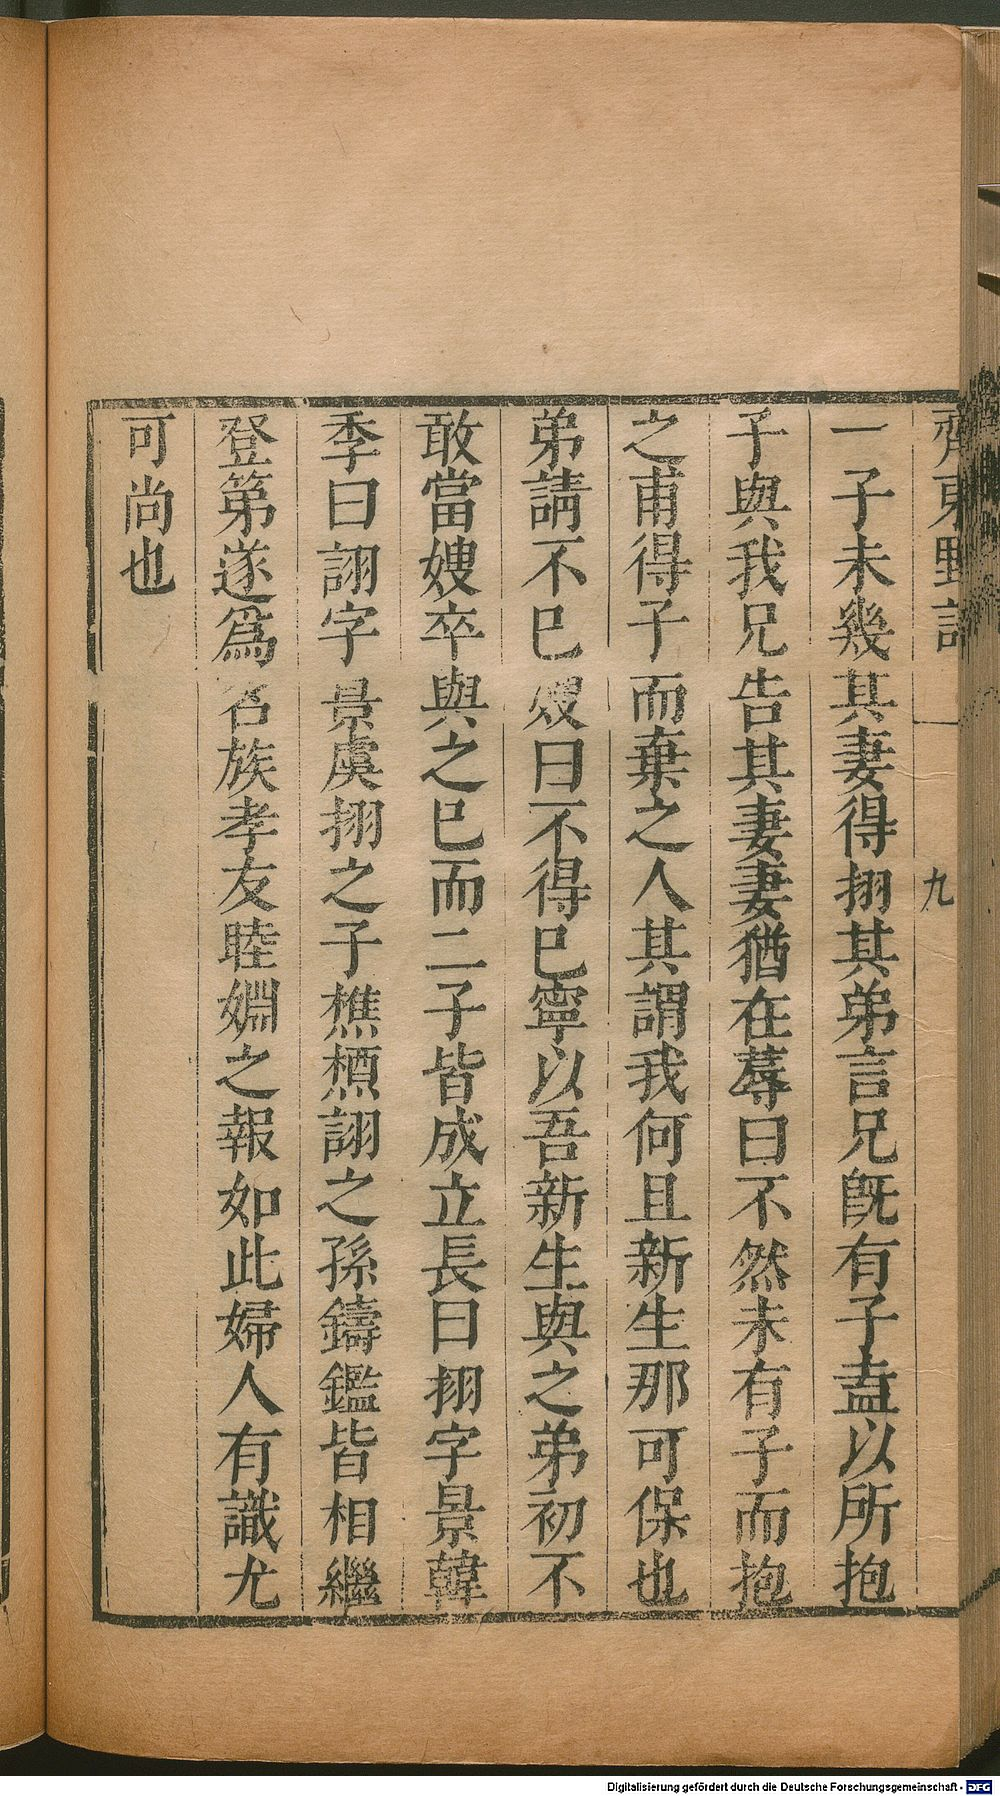 齊東野語
九
一子未幾其妻得拁其弟言兄旣有子盍以所抱
子與我兄告其妻妻猶在蓐曰不然未有子而抱
之甫得子而棄之人其謂我何且新生那可保也
弟請不已嫂曰不得已寧以吾新生與之弟初不
敢當嫂卒與之已而二子皆成立長曰栩字景韓
季曰詡字景虞栩之子樵槱詡之孫鑄鑑皆相繼
登第遂爲名族孝友睦婣之報如此婦人有識尤
可尚也
Digitalisierung gefördert durch die Deutsche Forschungsgemeinschaft - DFG